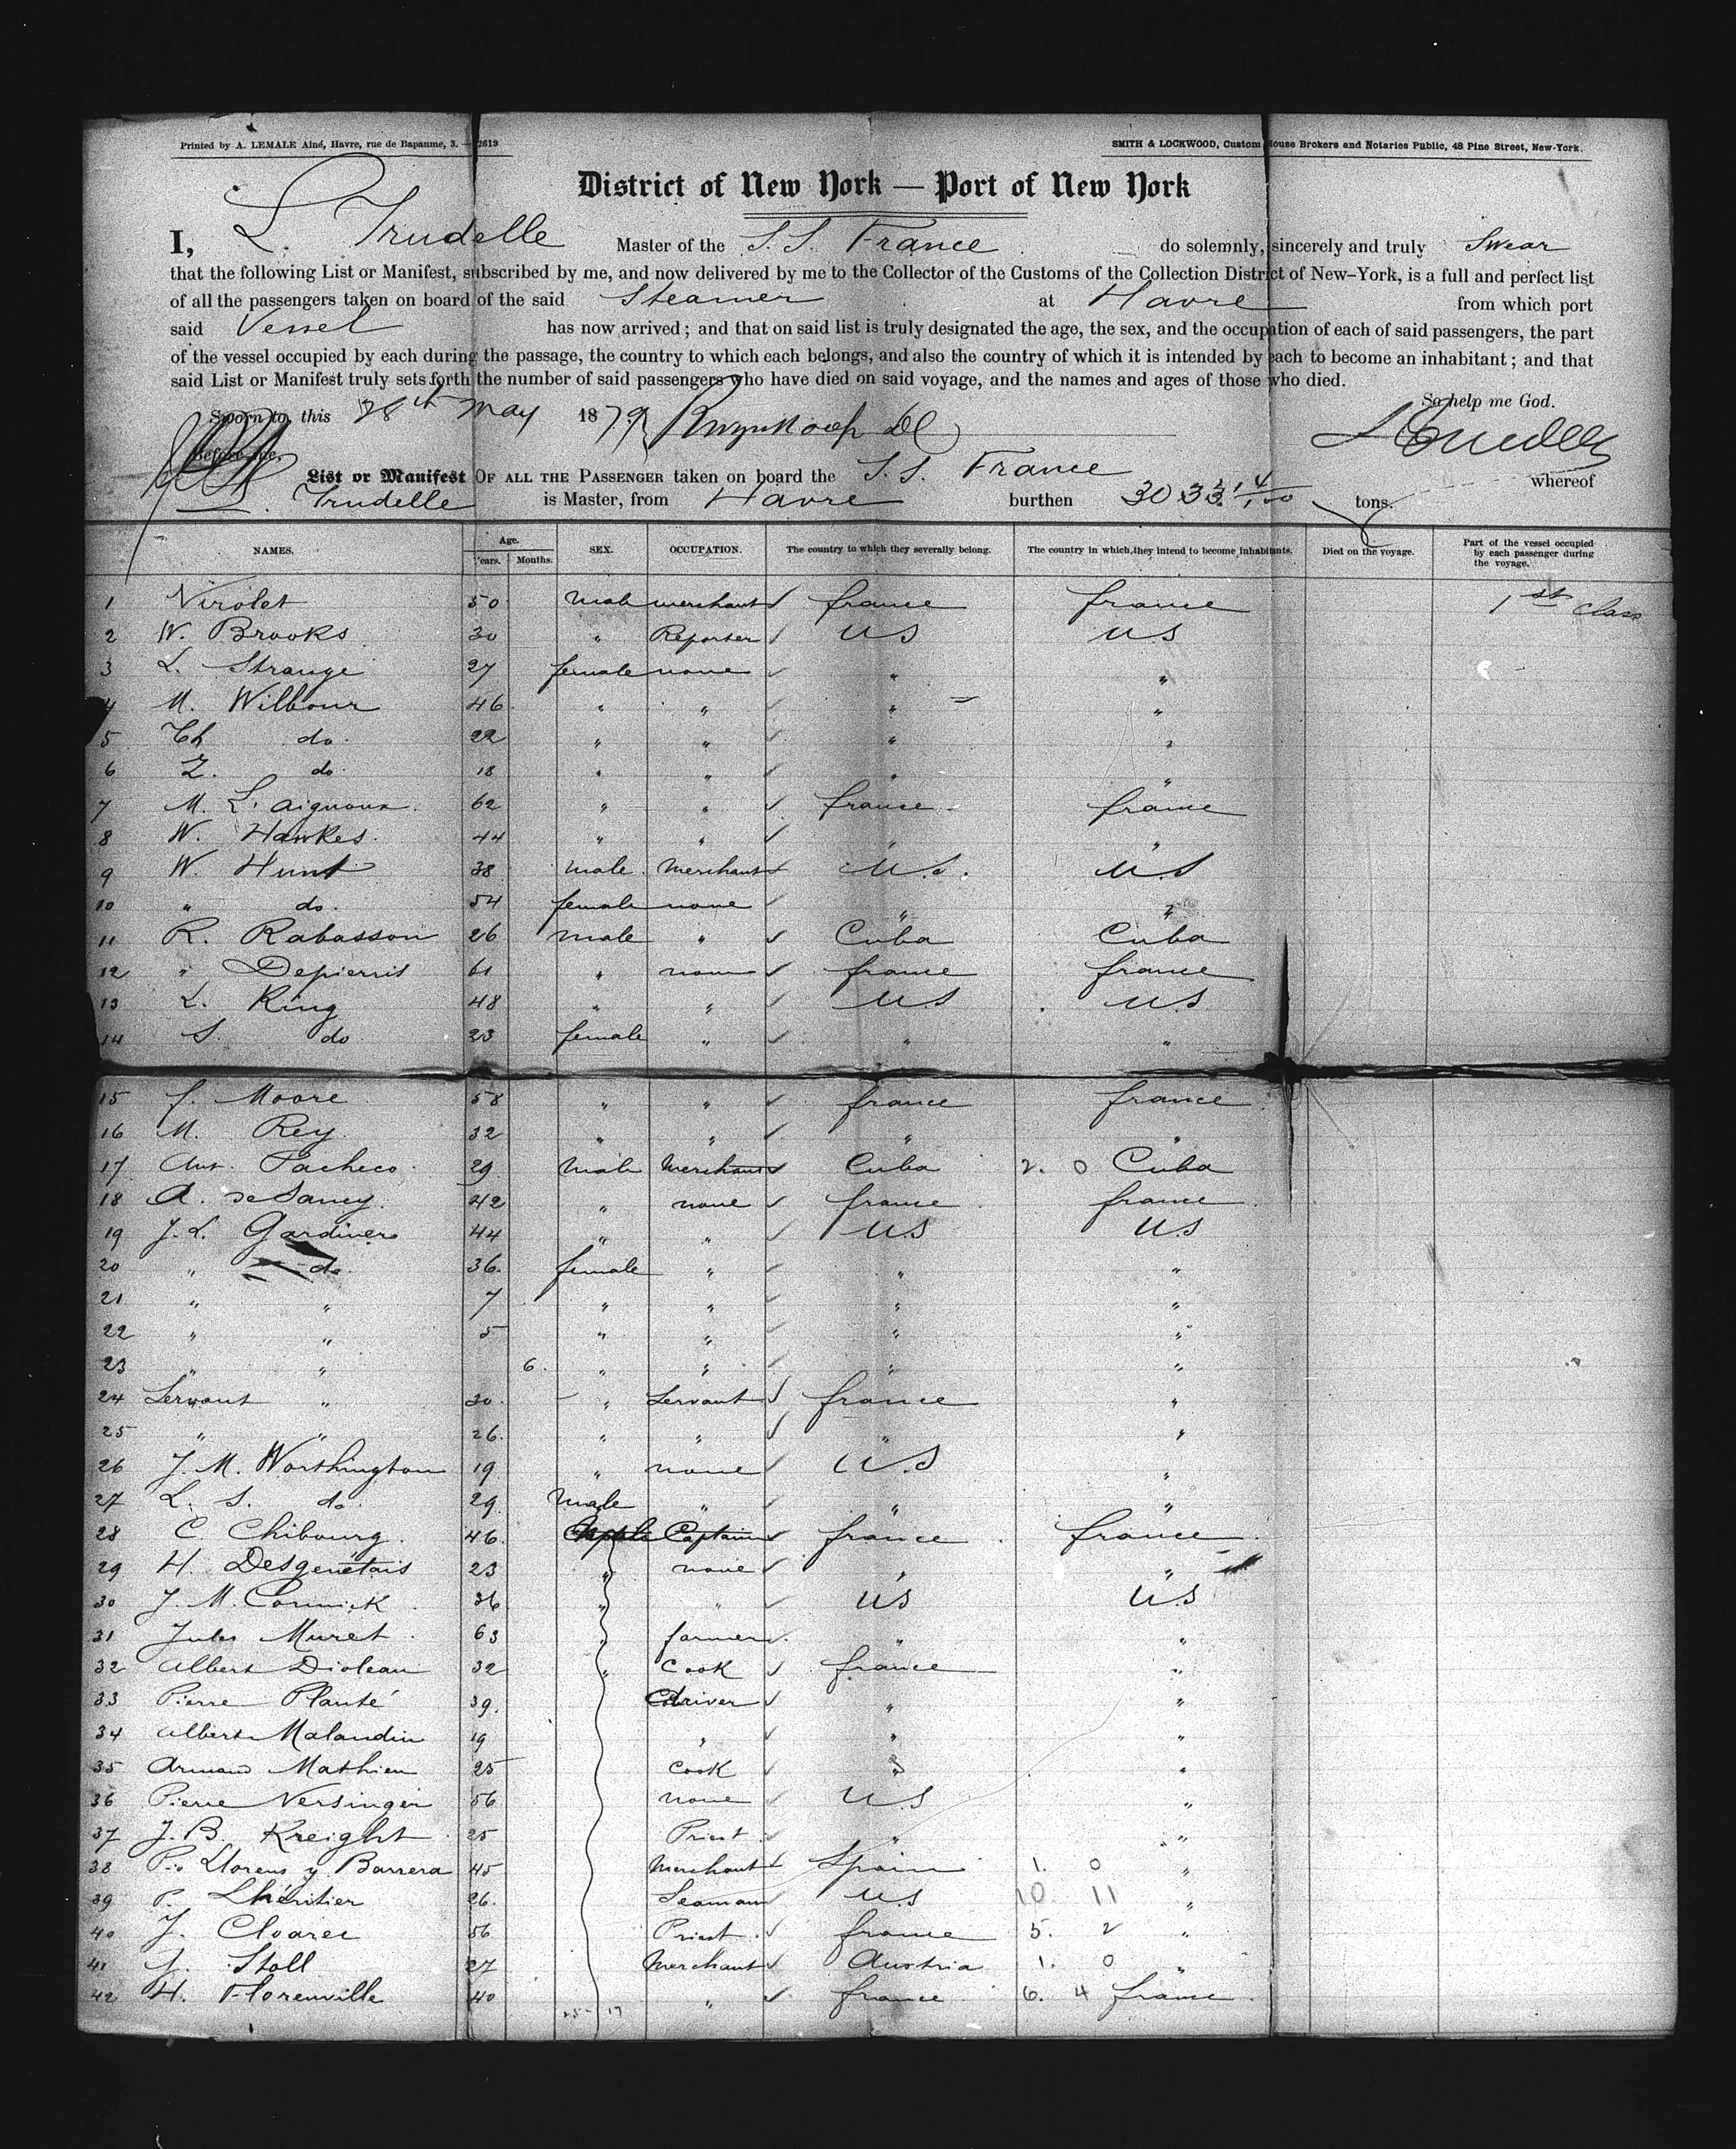 Printed by A. LEMALE Aîné, Havre, rue de Bapaume, 3. — 2619
SMITH & LOCKWOOD, Custom House Brokers and Notaries Public, 48 Pine Street, New-York.
District of New York — Port of New York
I, L. Trudelle Master of the S.S. France do solemnly, sincerely and truly Swear
that the following List or Manifest, subscribed by me, and now delivered by me to the Collector of the Customs of the Collection District of New-York, is a full and perfect list
of all the passengers taken on board of the said Steamer at Havre from which port
said Vessel has now arrived; and that on said list is truly designated the age, the sex, and the occupation of each of said passengers, the part
of the vessel occupied by each during the passage, the country to which each belongs, and also the country of which it is intended by each to become an inhabitant; and that
said List or Manifest truly sets forth the number of said passengers who have died on said voyage, and the names and ages of those who died.
So help me God.
Sworn to, this 28th May 1879
Before me,
List or Manifest OF ALL THE PASSENGER taken on board the S.S. France whereof
Trudelle is Master, from Havre burthen tons.
NAMES. Age. Years. Months. SEX. OCCUPATION. The country to which they severally belong. The country in which they intend to become inhabitants. Died on the voyage. Part of the vessel occupied by each passenger during the voyage.
1 Virolet 50 Male merchant france france 1st class
2 W. Brooks 30 " Reporter US US
3 L. Strange 27 female none " "
4 M. Wilbour 46 " " " "
5 Ch do 22 " " " "
6 Z. do 18 " " " "
7 M. L. aignoux 62 " " france france
8 W. Hawkes 44 " " " "
9 W. Hunt 38 Male Merchant U.S. U.S
10 " do. 54 female none " "
11 R. Rabasson 26 Male " Cuba Cuba
12 " Depierris 61 " none france france
13 L. King 48 " " US US
14 S. do 23 female " " "
15 f. Moore 58 " " france france
16 M. Rey 32 " " " "
17 Ant. Pacheco 29 Male Merchant Cuba 2. 0 Cuba
18 A. de Sancy 42 " none france france
19 J.L. Gardiner 44 " " US US
20 " do. 36 female " " "
21 " " 7 " " " "
22 " " 5 " " " "
23 " " 6 " " " "
24 Servant " 30 " Servant france "
25 " " 26 " " " "
26 J. M. Worthington 19 " none U.S "
27 L. S. do 29 Male " " "
28 C. Chibourg 46 Captain france france
29 H. Desgenétais 23 " none " "
30 J. M. Cormick 36 " " US U.S
31 Jules Muret 63 " farmer " "
32 Albert Dioleau 32 " Cook france "
33 Pierre Planté 39 driver " "
34 Albert Malandin 19 " " "
35 Armand Mathieu 25 Cook " "
36 Pierre Nersinger 56 none U.S "
37 J. B. Kreight 25 Priest " "
38 Pio Llorens y Barrera 45 Merchant Spain 1. 0 "
39 P. Lhéritier 26 Seaman US 10 11 "
40 J. Cloarec 56 Priest france 5. 2 "
41 J. Stoll 27 Merchant Austria 1. 0 "
42 H. Florenville 40 " france 6. 4 france
25 - 17